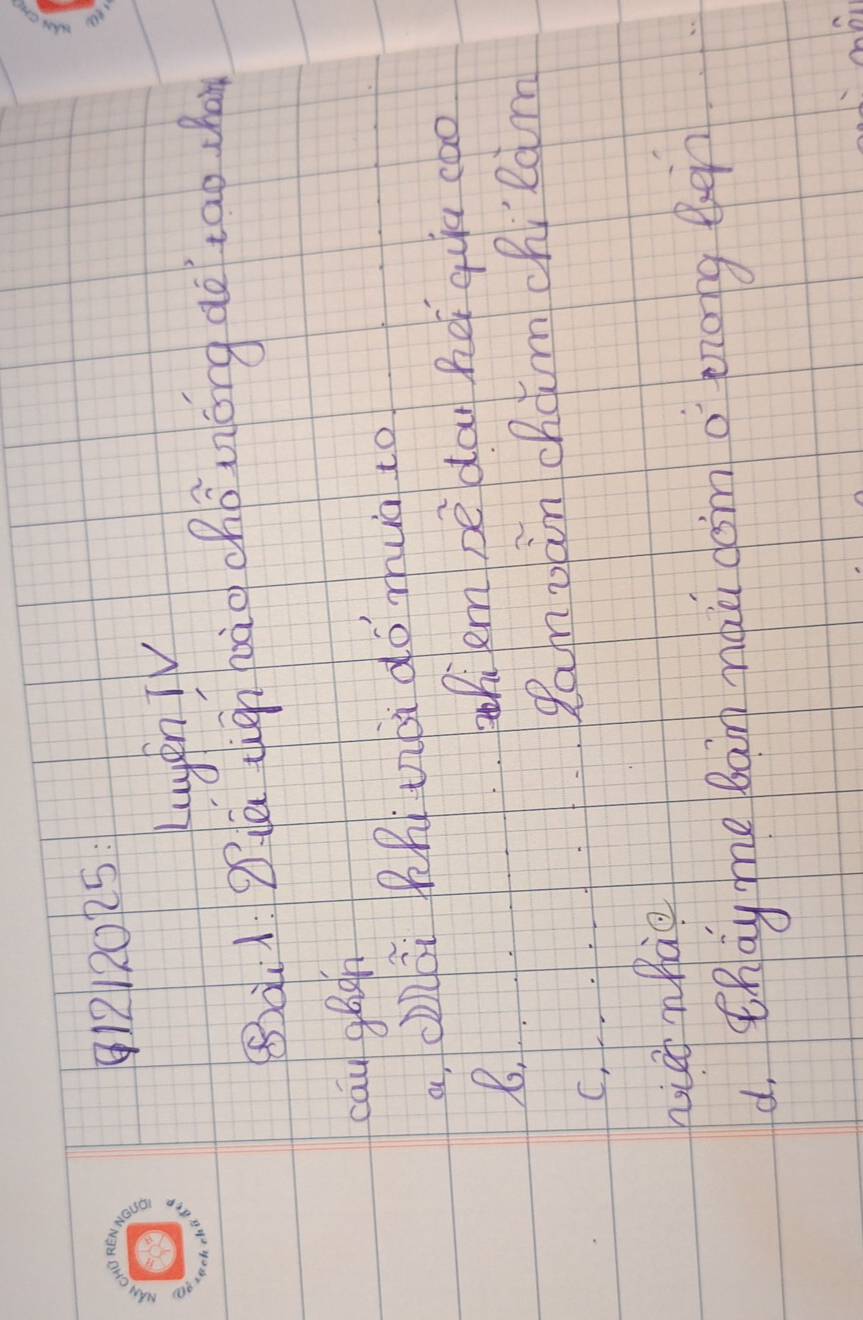 9/2/2025:
Luyện TV
Bài 1: Viết tiếp vào chỗ trống để tạo thành
câu ghép
a, Mỗi khi trời đổ mưa to . . . . . .
b, . . . . . . . thì em sẽ đạt kết quả cao
c, . . . . . . . Lan vẫn chăm chỉ làm
việc nhà.
d, Thấy mẹ bận nấu cơm ở trong bếp . . .
NÉT CHỮ RÈN NGƯỜI